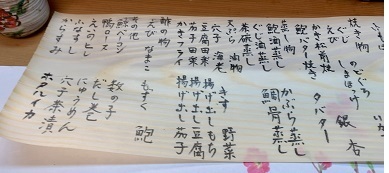 焼き物 のどぐろ
えび しまほっけ 銀杏
かき松前焼
鮑バター焼き タバター
蒸し物
鮑酒蒸し かぶら蒸し
ぐじ酒蒸し 鯛骨蒸し
茶碗蒸し
天ぷら
穴子 海老 きす 野菜
豆腐田楽 揚げ出しもち
かき田楽 揚げ出し豆腐
かきフライ 揚げ出し茄子
酢の物
えび なまこ もずく 鮑
その他
鯨ベーコン 数の子
鴨ロース だし巻
えんのとし にゅうめん
ふなずし 穴子茶漬
からすみ ホタルイカ